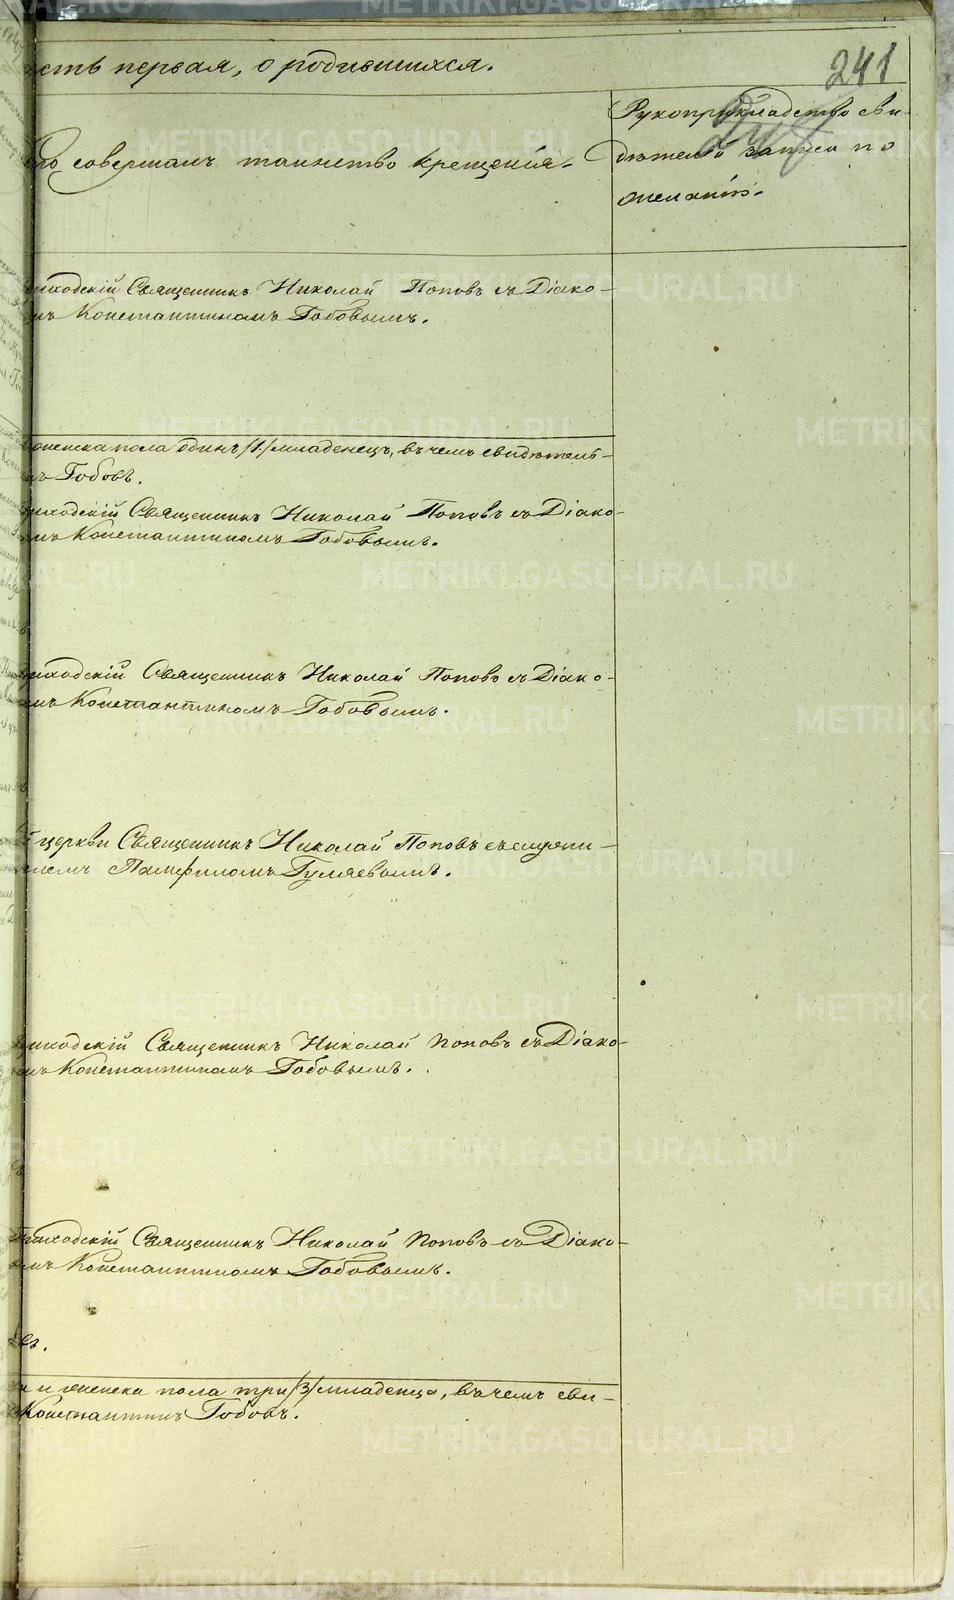 241
сть первая, о родившихся.
Кто совершалъ таинство крещенія.
Рукоприкладство сви-
дѣтелей записи по
желанію.
приходскій Священникъ Николай Поповъ съ Діако-
номъ Константиномъ Гобовымъ.
женска пола одинъ /1/ младенецъ, въ чемъ свидѣтель-
Гобовъ.
приходскій Священникъ Николай Поповъ съ Діако-
номъ Константиномъ Гобовымъ.
приходскій Священникъ Николай Поповъ съ Діако-
номъ Константиномъ Гобовымъ.
й церкви Священникъ Николай Поповъ съ
Памфиломъ Гуляевымъ.
приходскій Священникъ Николай Поповъ съ Діако-
номъ Константиномъ Гобовымъ.
приходскій Священникъ Николай Поповъ съ Діако-
номъ Константиномъ Гобовымъ.
и женска пола три /3/ младенца, въ чемъ сви-
Константинъ Гобовъ.
METRIKI.GASO-URAL.RU